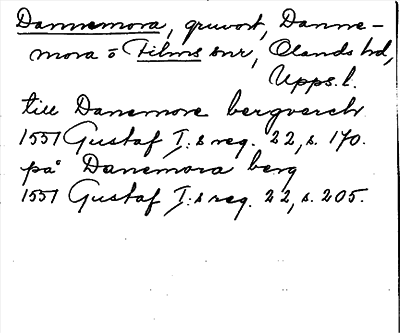 Dannemora, gruvort, Danne-
mora o Films snr, Olands hd,
Upps. l.
till Danemore bergverck
1551 Gustaf I:s reg. 22, s. 170.
på Danemora berg
1551 Gustaf I:s reg. 22, s. 205.